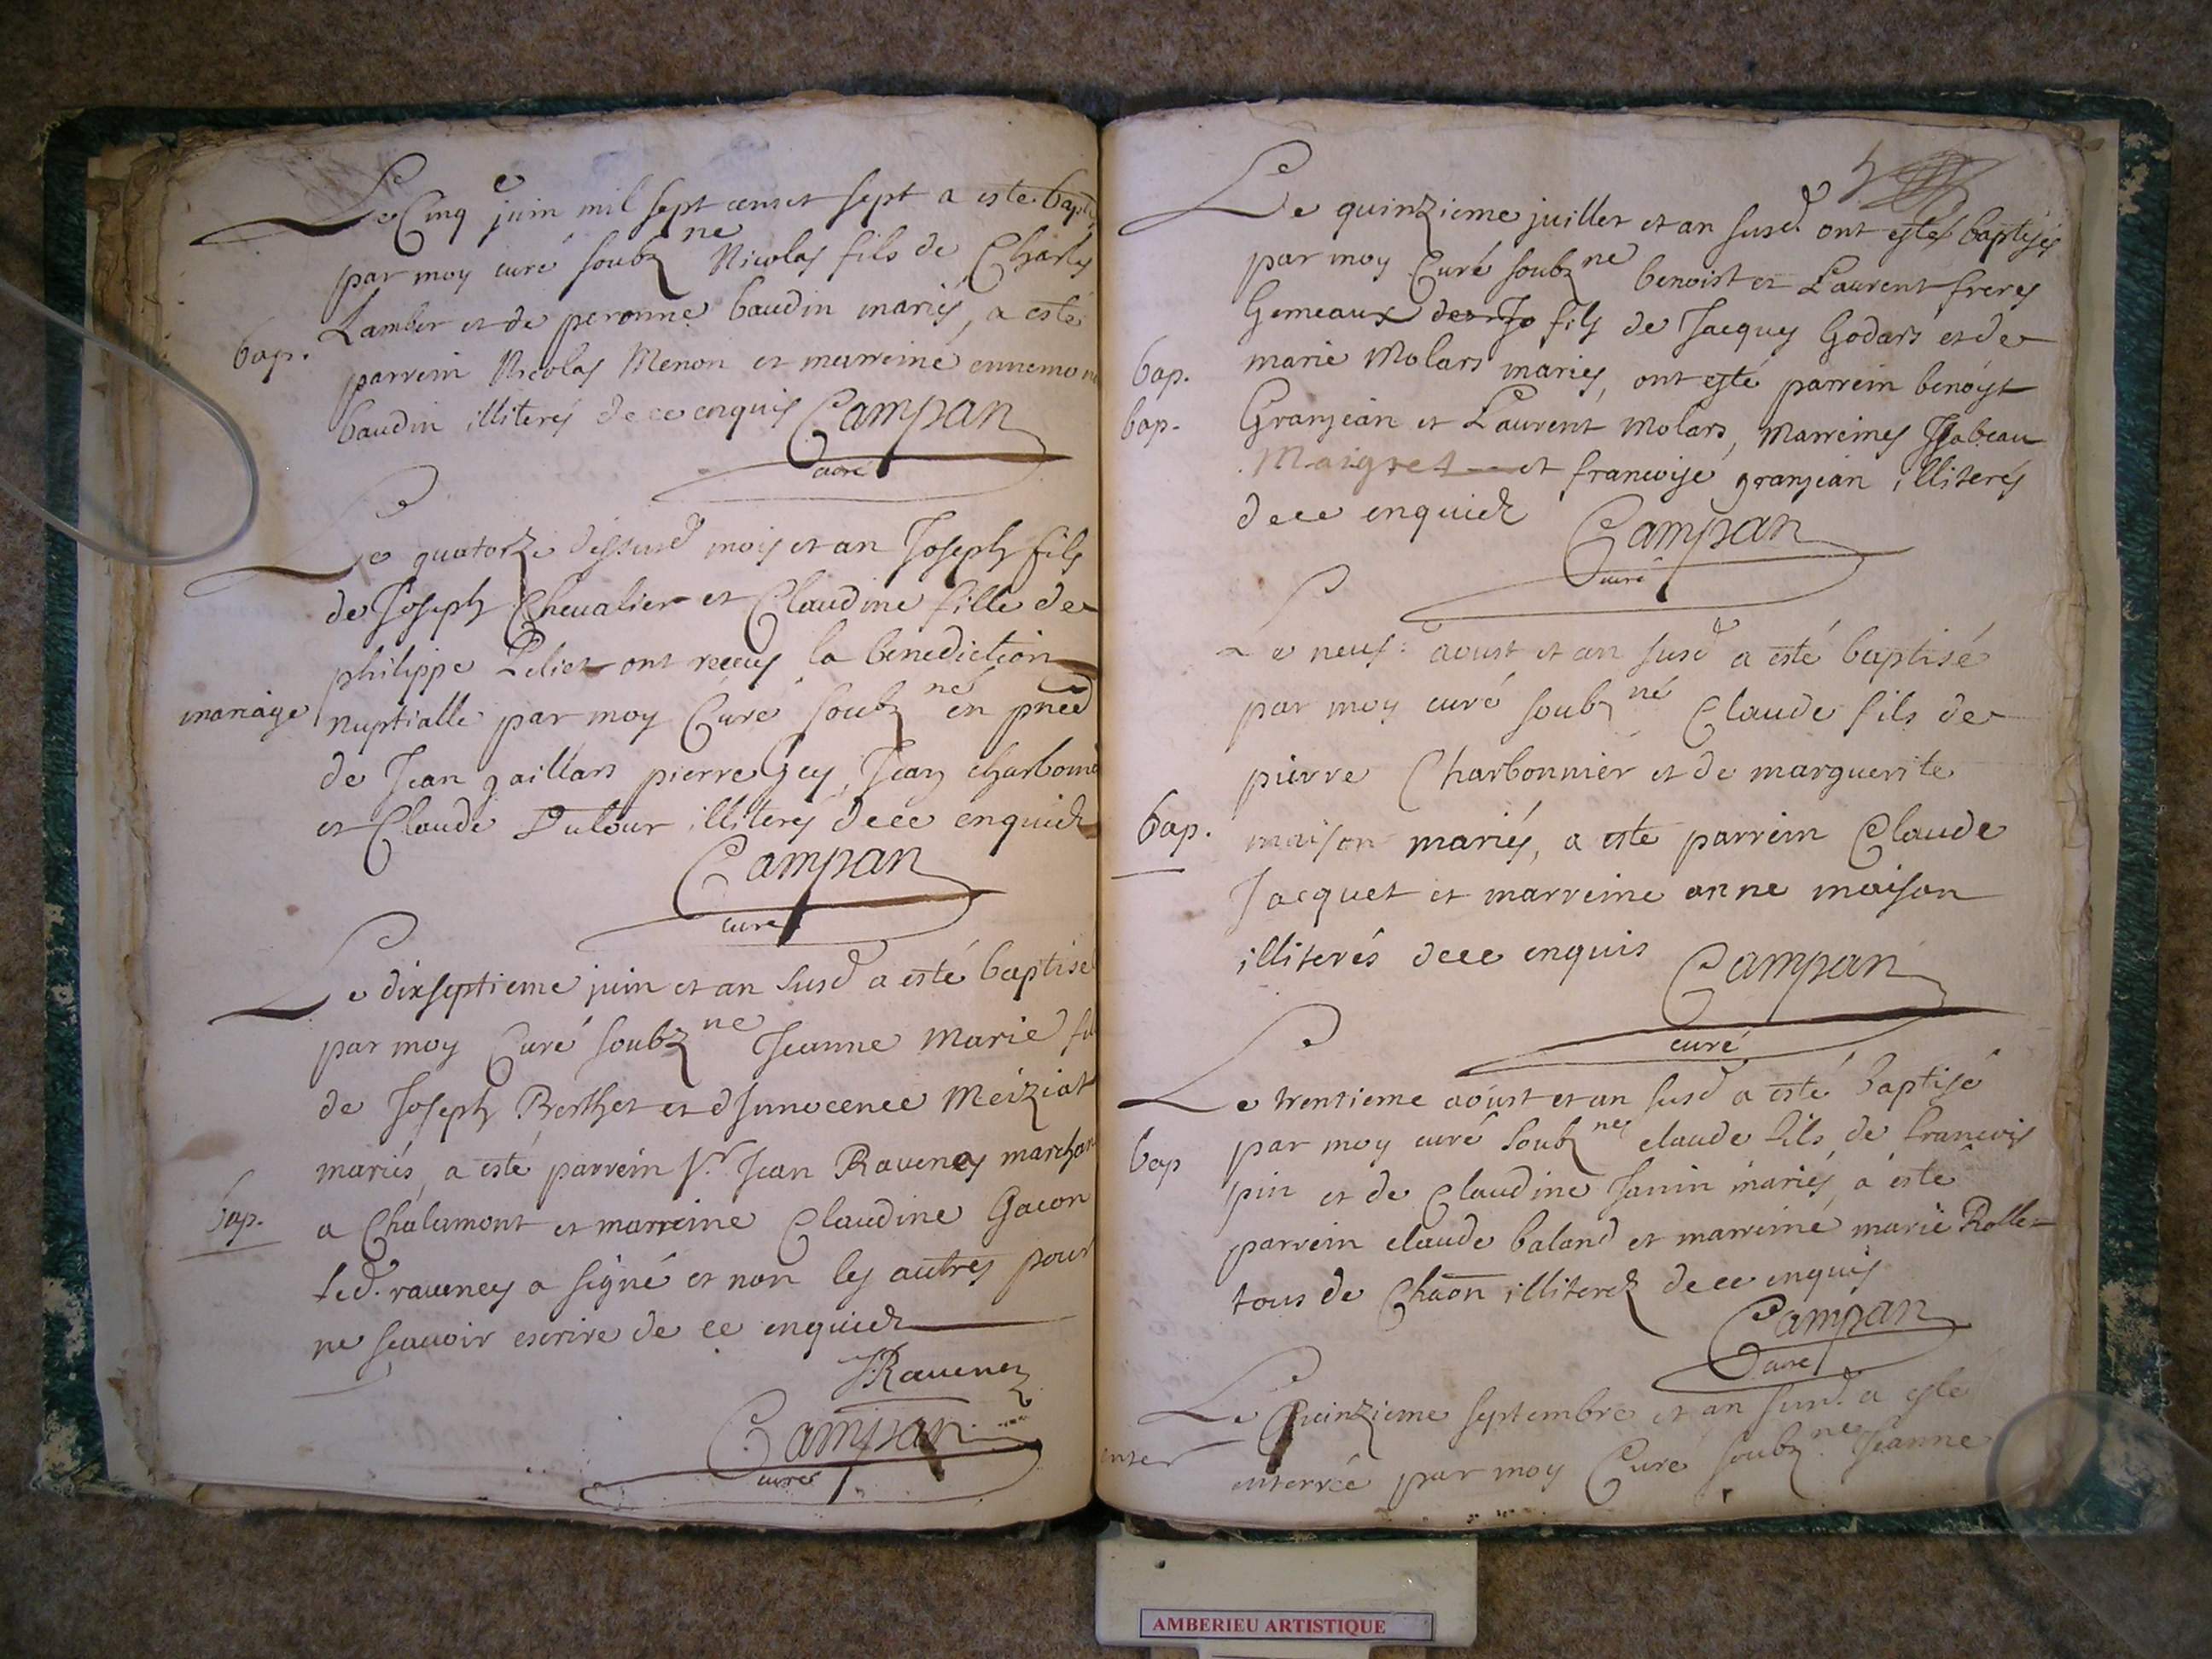 Le Cinq juin mil sept cent et sept a esté bapt
par moy curé soubz ne Nicolas fils de Charles
Lamber et de peronne baudin mariés, a esté
bap.
parrein Nicolas Menon et marreine ennemon
baudin illiterés de ce enquis Campan
curé
Le quatorze dessusd mois et an Joseph fils
de Joseph Chevalier et Claudine fille de
philippe Peliet ont receus la benediction
mariage
nuptialle par moy Curé soubz né en pñed
de Jean gaillars pierre Gey, Jean charbonni
et Claude Dutour illiterés dece enquich
Campan
curé
Le dixseptieme juin et an susd a esté baptisé
par moy Curé soubz ne Jeanne Marie fil
de Joseph Berthet et d'Innocence Meiziat
mariés, a esté parrein Sr. Jean Raveney marchan
bap.
a Chalamont et marreine Claudine Gacon
led. raveney a signé et non les autres pour
ne scavoir escrire de ce enquich
JRaveney
Campan
curé
5
Le quinzieme juillet et an susd. ont estés baptisés
par moy Curé soubz ne benoist et Laurent freres
Gemeaux fils de Jacques Godars et de
marie Molars mariés, ont esté parrein benoyst
bap.
bap.
Granjean et Laurent Molars, Marreines Isabeau
Maigret et francoise granjean illiterés
dece enquich
Campan
curé
Le neuf: aoust et an susd a esté baptisé
par moy curé soubz né Claude fils de
pierre Charbonnier et de marguerite
bap.
maison mariés, a esté parrein Claude
Jacquet et marreine anne maison
illiterés dece enquis
Campan
curé
Le trentieme aoust et an susd a esté baptisé
par moy curé soubz nes claude fils de francois
bap
pin et de Claudine Janin mariés, a esté
parrein claude baland et marreine marie Rollet
tous de Chaon illiterez dece enquis
Campan
curé
Le Quinzieme septembre et an susd. a esté
enter
enterrée par moy Curé soubz ne Jeanne
AMBERIEU ARTISTIQUE